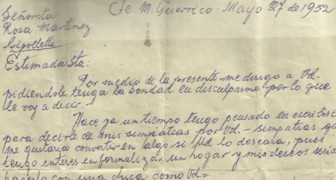 Señorita
Rosa Martinez
Cipolletti
Cte M. Guerrico - Mayo 27 de 1952
Estimada Sta:
Por medio de la presente me dirijo a Vd.
pidiendole tenga la bondad en disculparme por lo que
le voy a decir.-
Hace ya un tiempo tengo pensado en escribirle
para decirle de mis simpatias por Vd - simpatias, que
me gustaria convertir en algo si Vd lo deseara, pues
tengo interes en formalizar un hogar y mis deseos serian
hacerlo con una chica como Vd -